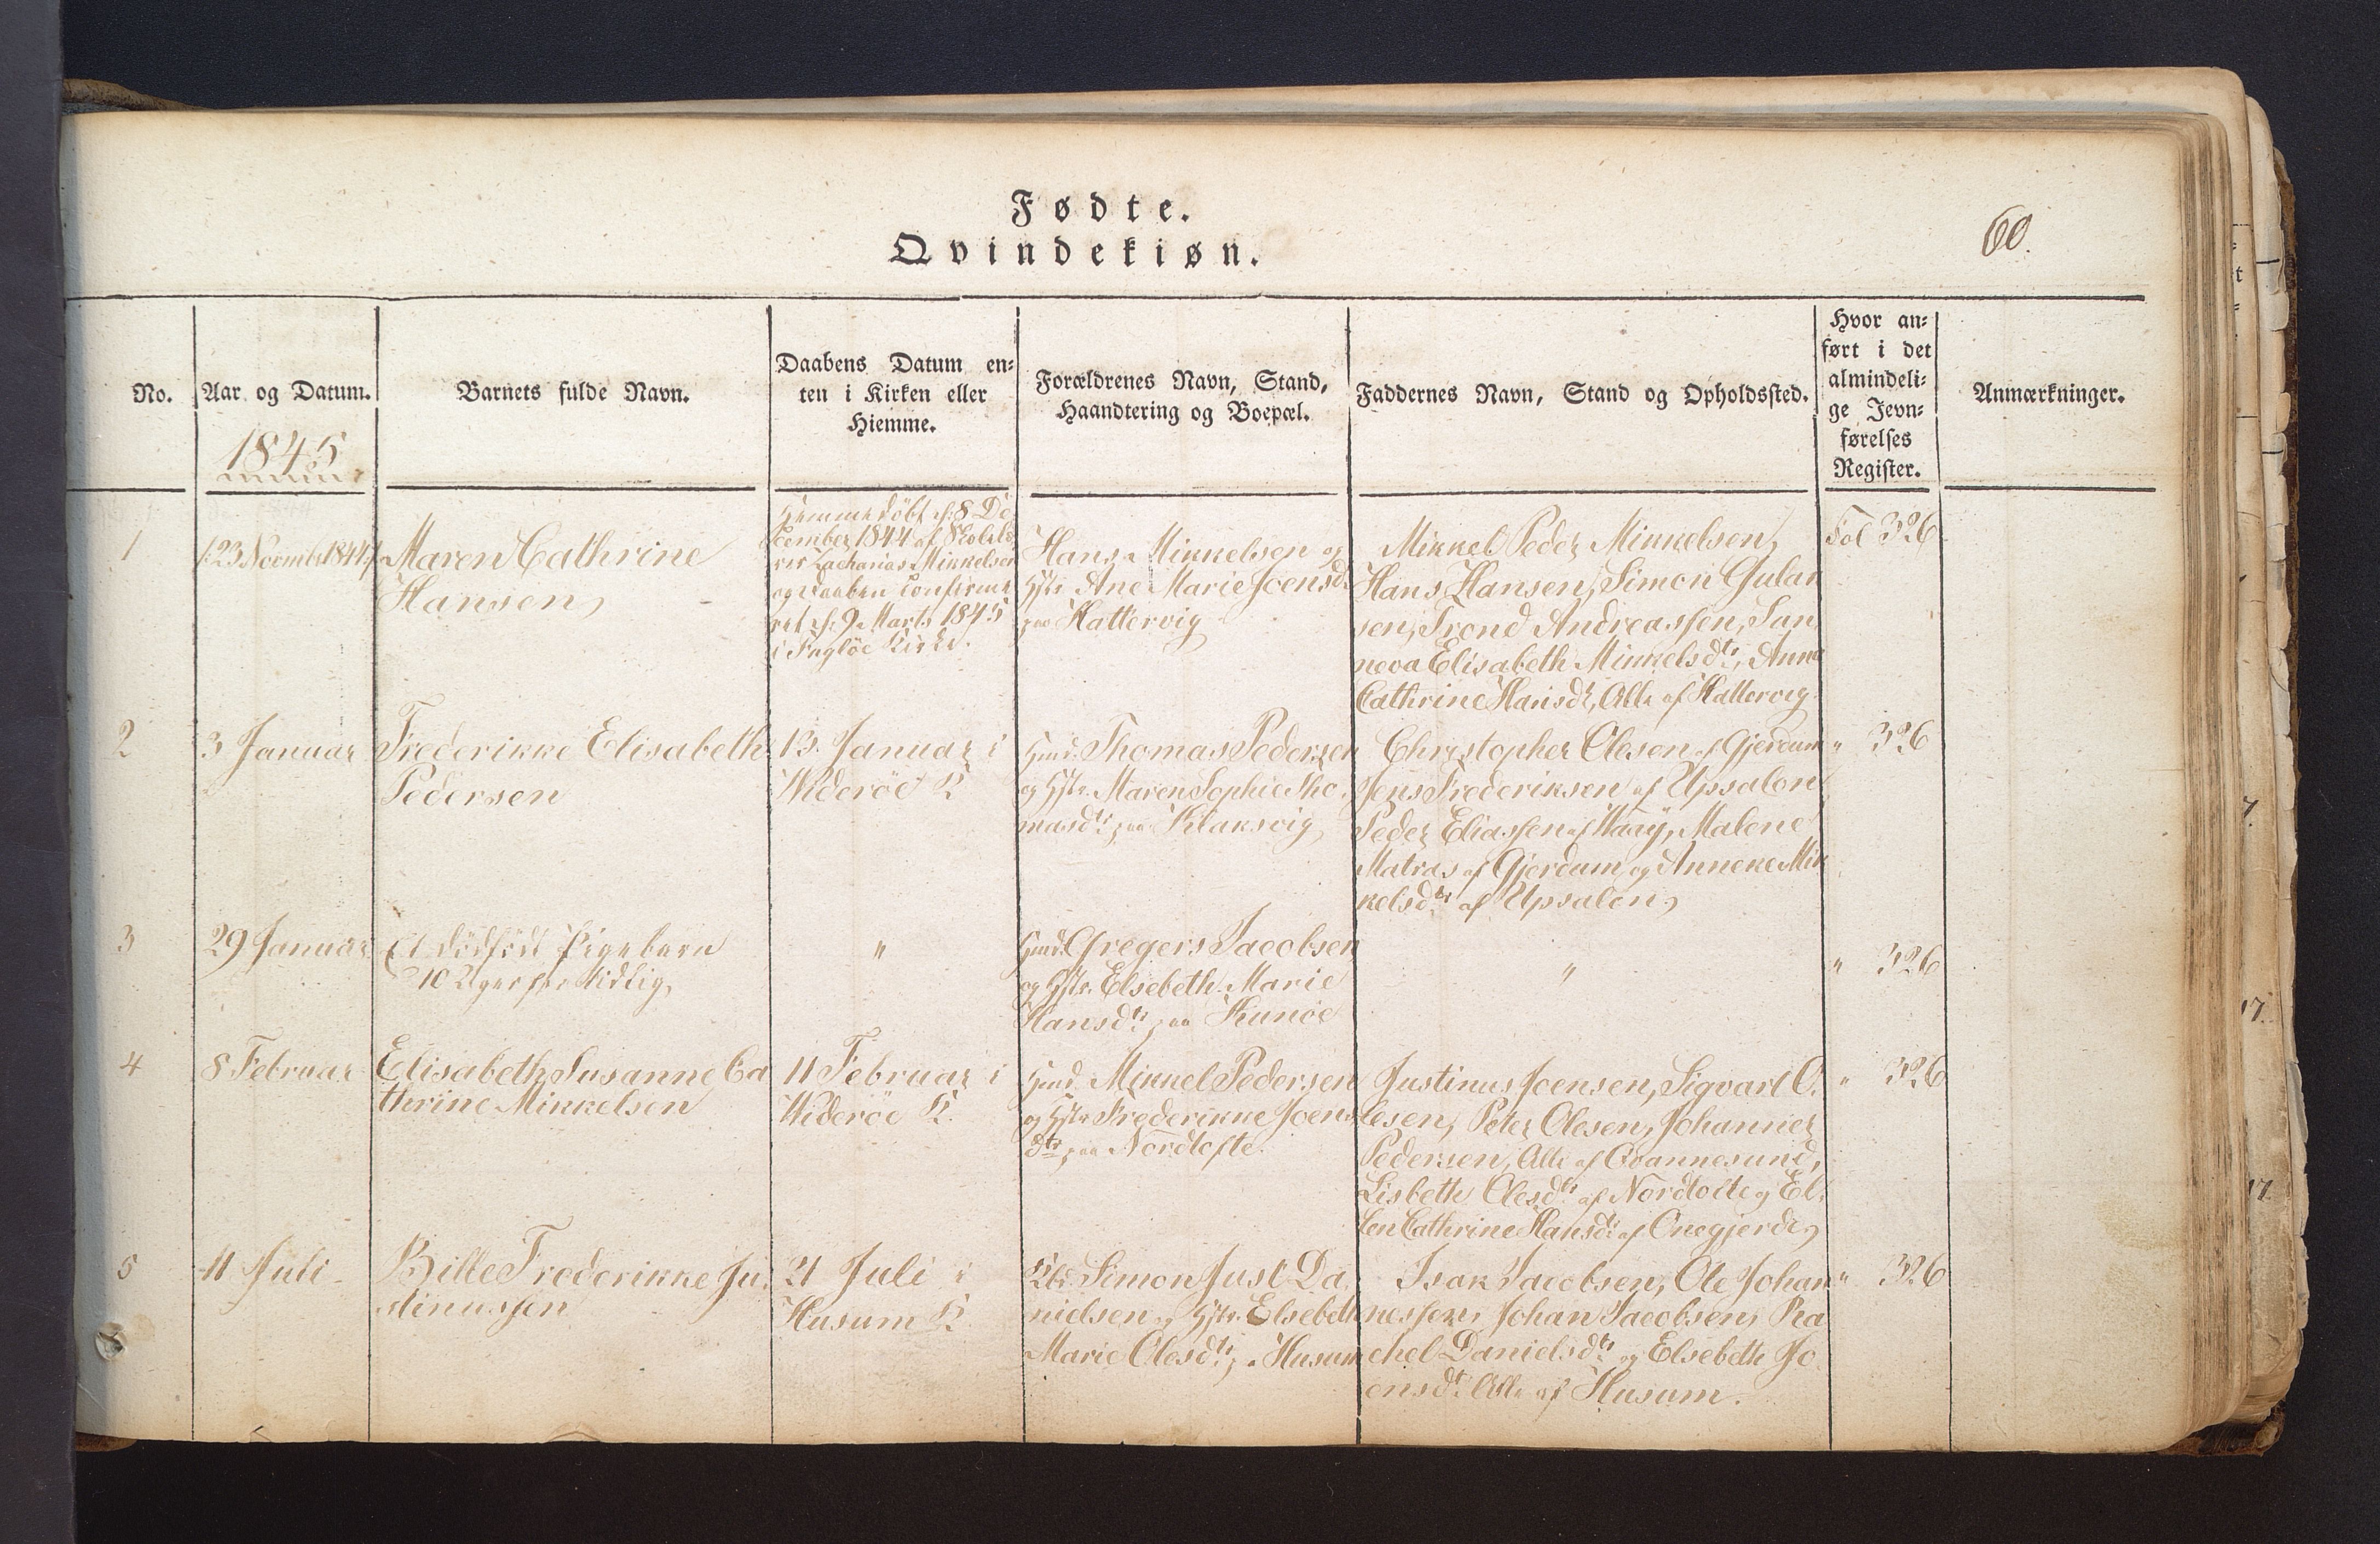 Fødte.
Qvindekiøn.
60.
No.
Aar og Datum.
1845
Barnets fulde Navn.
Daabens Datum en=
ten i Kirken eller
Hiemme.
Forældrenes Navn, Stand,
Haandtering og Boepæl.
Faddernes Navn, Stand og Opholdssted.
Hvor an=
ført i det
almindeli=
ge Jevn=
førelses
Register.
Anmærkninger.
1
23 Novembr 1844
Maren Cathrine
Hansen
Hjemmedøbt d. 8 De
cember 1844 af Skolelæ
rer Zacharias Mikkelsen
og Daaben confirme
ret d. 9 Marts 1845
i Fugløe Kirke.
Hans Mikkelsen og
Hstr. Ane Marie Joensd.
paa Hattervig
Mikkel Peder Mikkelsen,
Hans Hansen, Simon Gulak
sen, Trond Andreassen, San
neva Elisabeth Mikkelsdtr, Anna
Cathrine Hansdtr, Alle af Hattervig
Fol 326
2
3 Januar
Frederikke Elisabeth
Pedersen
13. Januar i
Widerøe K
Hmd. Thomas Pedersen
og Hstr. Maren Sophie Tho
masdtr paa Klaksvig
Christopher Olesen af Gjerdum
Jens Frederiksen af Upsalon
Peder Eliassen af Waay, Malene
Matras af Gjerdum og Anneke Mik
kelsdtr af Upsalon
" 326
3
29 Januar
Et dödfödt Pigebarn
10 Uger for tidlig.
"
Hmd. Gregers Jacobsen
og Hstr. Elsebeth Marie
Hansdtr paa Kunöe
"
" 326
4
8 Februar
Elisabeth Susanne Ca
thrine Mikkelsen
11 Februar i
Widerøe K.
Hmd. Mikkel Pedersen
og Hstr Frederikke Joens
dtr paa Nordtofte.
Justinus Joensen, Sigvart O.
lesen, Peter Olesen, Johannes
Pedersen, Alle af Qvannesund,
Lisbeth Olesdtr af Nordtofte og El.
len Cathrine Hansdtr af Onegjerde
" 326
5
11 Juli
Bille Frederikke Ju.
stinussen
21 Juli i
Husum K
Simon Just Da
nielsen og Hstr. Elsebeth
Marie Olesdtr paa Husum
Isak Jacobsen, Ole Johan
nessen, Johan Jacobsen, Ra
chel Danielsdtr og Elsebeth Jo
ensdt. Alle af Husum.
" 326